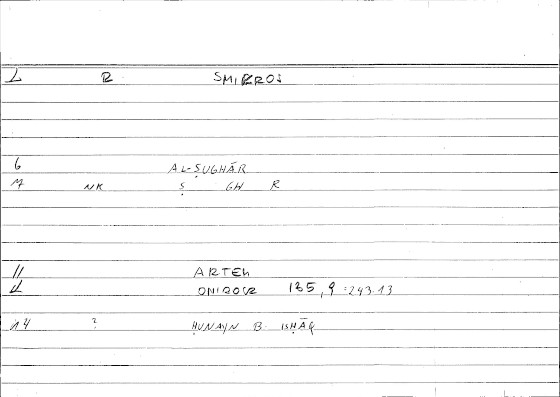 1 R SMIKROS
6 AL-ṢUGHĀR
7 NK Ṣ GH R
11 ARTEM
12 ONIROCR 135,9 : 243.13
14 ? ḤUNAYN B. ISḤĀQ